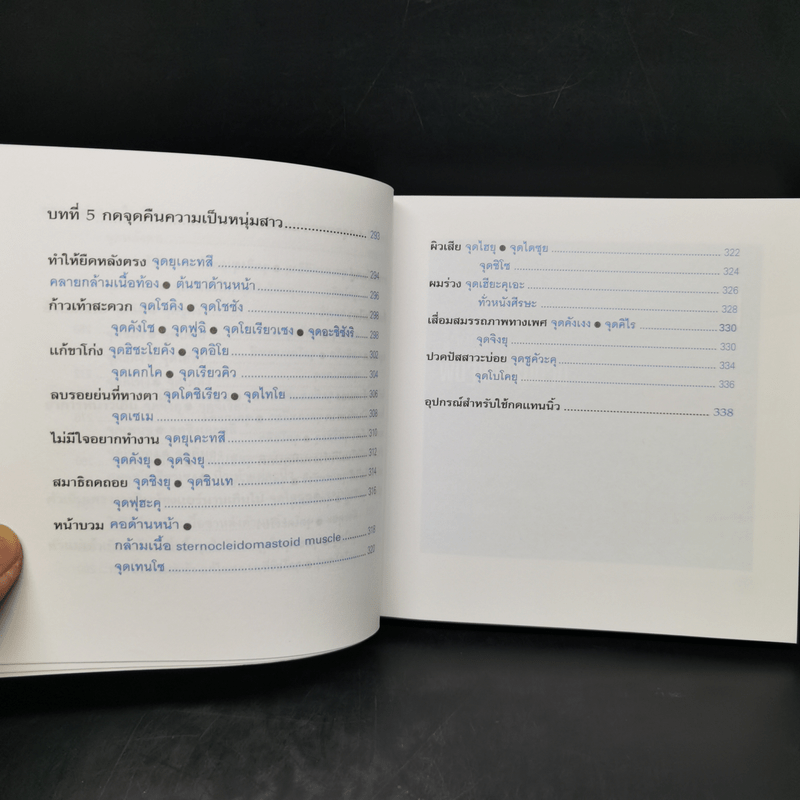 บทที่ 5 กดจุดคืนความเป็นหนุ่มสาว 293
ทำให้ยืดหลังตรง จุดยุเคะทสึ 294
คลายกล้ามเนื้อท้อง ● ต้นขาด้านหน้า 296
ก้าวเท้าสะดวก จุดโชคิง ● จุดโชซัง 298
จุดคังโช ● จุดฟูฉิ ● จุดโยเรียวเซง ● จุดอะชิซังริ 300
แก้ขาโก่ง จุดฮิชะโยคัง ● จุดอิโย 302
จุดเคกไค ● จุดเรียวคิว 304
ลบรอยย่นที่ทางตา จุดโดชิเรียว ● จุดไทโย 306
จุดเซเม 308
ไม่มีใจอยากทำงาน จุดยุเคะทสึ 310
จุดคังยุ ● จุดจิงยุ 312
สมาธิถดถอย จุดชิงยุ ● จุดชินเท 314
จุดฟุฮะคุ 316
หน้าบวม คอด้านหน้า ●
กล้ามเนื้อ sternocleidomastoid muscle 318
จุดเทนโซ 320
ผิวเสีย จุดไฮยุ ● จุดไดซุย 322
จุดชิโช 324
ผมร่วง จุดเฮียะคุเอะ 326
ทั่วหนังศีรษะ 328
เสื่อมสมรรถภาพทางเพศ จุดคังเงง ● จุดคิไร 330
จุดจิงยุ 330
ปวดปัสสาวะบ่อย จุดชูคัวะคุ 334
จุดโบโคยุ 336
อุปกรณ์สำหรับใช้กดแทนนิ้ว 338